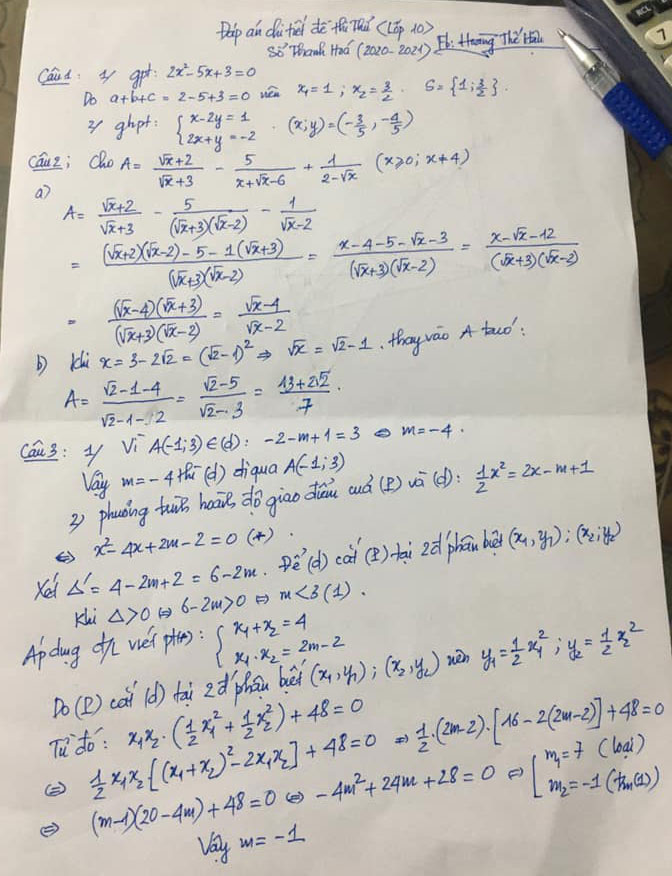 Đáp án chi tiết đề thi thử <Lớp 10>
Sở Thanh Hoá (2020-2021) Fb: Hoàng Thế Hữu
Câu 1: 1/ gpt: 2x² - 5x + 3 = 0
Do a+b+c = 2-5+3 = 0 nên x₁ = 1 ; x₂ = 3/2 . S = {1; 3/2}.
2/ ghpt: { x-2y = 1 ; 2x+y = -2 . (x;y) = (-3/5 , -4/5)
Câu 2; Cho A = (√x+2)/(√x+3) - 5/(x+√x-6) + 1/(2-√x) (x≥0; x≠4)
a)
A = (√x+2)/(√x+3) - 5/((√x+3)(√x-2)) - 1/(√x-2)
= ((√x+2)(√x-2) - 5 - 1(√x+3))/((√x+3)(√x-2)) = (x-4-5-√x-3)/((√x+3)(√x-2)) = (x-√x-12)/((√x+3)(√x-2))
= ((√x-4)(√x+3))/((√x+3)(√x-2)) = (√x-4)/(√x-2)
b) khi x = 3-2√2 = (√2-1)² ⇒ √x = √2-1 . thay vào A ta có:
A = (√2-1-4)/(√2-1-2) = (√2-5)/(√2-3) = (13+2√2)/7 .
Câu 3: 1/ Vì A(-1;3) ∈ (d): -2-m+1 = 3 ⇔ m = -4 .
Vậy m = -4 thì (d) đi qua A(-1;3)
2) phương trình hoành độ giao điểm của (P) và (d): 1/2x² = 2x-m+1
⇔ x²-4x+2m-2 = 0 (*) .
Xét Δ' = 4-2m+2 = 6-2m . Để (d) cắt (P) tại 2 đ' phân biệt (x₁,y₁); (x₂;y₂)
Khi Δ>0 ⇔ 6-2m>0 ⇔ m<3 (1) .
Áp dụng đ/L viét pt(*): { x₁+x₂ = 4 ; x₁.x₂ = 2m-2
Do (P) cắt (d) tại 2 đ' phân biệt (x₁,y₁); (x₂,y₂) nên y₁ = 1/2x₁² ; y₂ = 1/2x₂²
Từ đó: x₁x₂.(1/2x₁² + 1/2x₂²) + 48 = 0
⇔ 1/2x₁x₂.[(x₁+x₂)² - 2x₁x₂] + 48 = 0 ⇒ 1/2.(2m-2).[16-2(2m-2)] + 48 = 0
⇔ (m-1)(20-4m) + 48 = 0 ⇔ -4m²+24m+28 = 0 ⇔ [ m₁ = 7 (loại) ; m₂ = -1 (tm(1))
Vậy m = -1